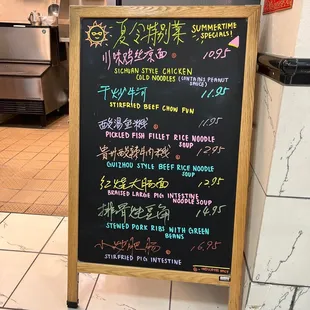 夏令特别菜
SUMMERTIME
SPECIALS!
川味鸡丝凉面 10.95
SICHUAN STYLE CHICKEN
COLD NOODLES (CONTAINS PEANUT
SAUCE)
干炒牛河 11.95
STIRFRIED BEEF CHOW FUN
酸湯魚米线 11.95
PICKLED FISH FILLET RICE NOODLE
SOUP
贵州酸辣牛肉米线 12.95
GUIZHOU STYLE BEEF RICE NOODLE
SOUP
红烧大肠面 12.95
BRAISED LARGE PIG INTESTINE
NOODLE SOUP
排骨炖豆角 14.95
STEWED PORK RIBS WITH GREEN
BEANS
小炒肥肠 16.95
STIRFRIED PIG INTESTINE